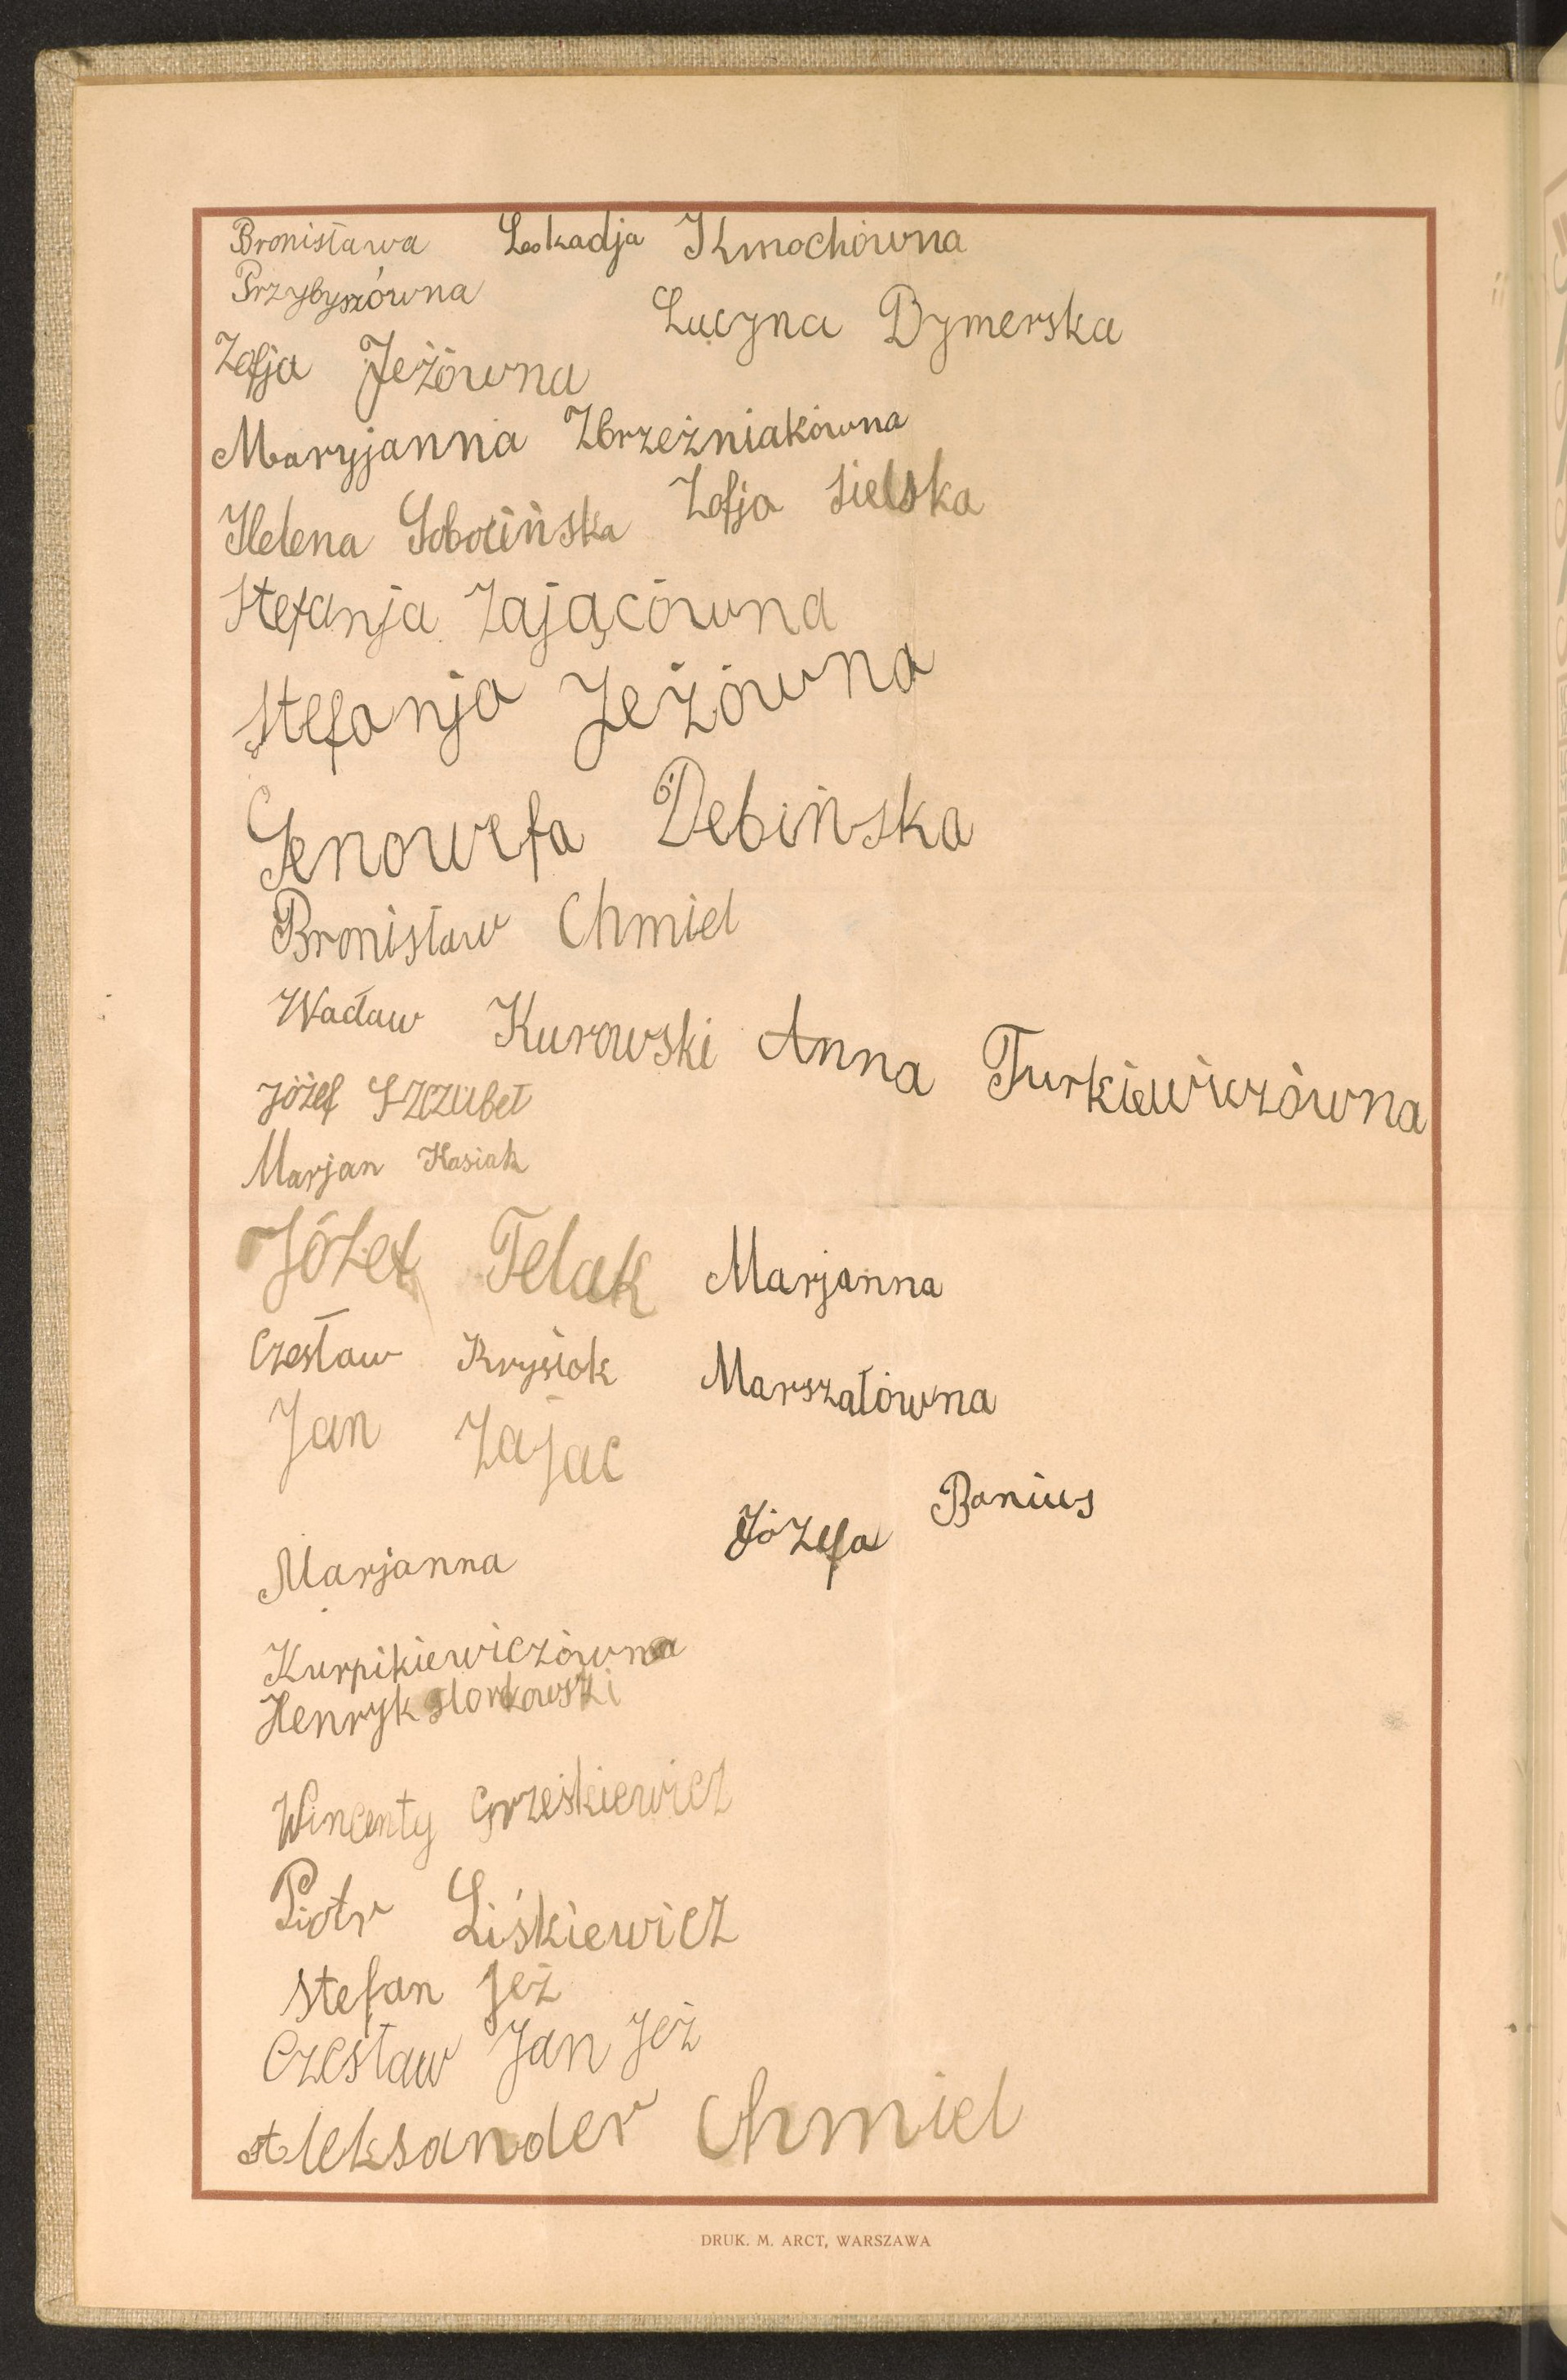 Bronisława Leokadja Kmochówna
Przybyszówna
Lucyna Dymerska
Zofja Jeżówna
Maryjanna Zbrzeźniakówna
Helena Sobocińska Zofja Sielska
Stefanja Zającówna
Stefanja Jeżówna
Genowefa Debińska
Bronisław Chmiel
Wacław Kurowski Anna Turkiewiczówna
Józef Szczubeł
Marjan Kasiak
Józef Telak Marjanna
Czesław Krysiak Marszałówna
Jan Zajac
Józefa Banius
Marjanna
Kurpikiewiczówna
Henryk
Wincenty Grześkiewicz
Piotr Liśkiewicz
Stefan Jeż
Czesław Jan Jeż
Aleksander Chmiel
DRUK. M. ARCT, WARSZAWA